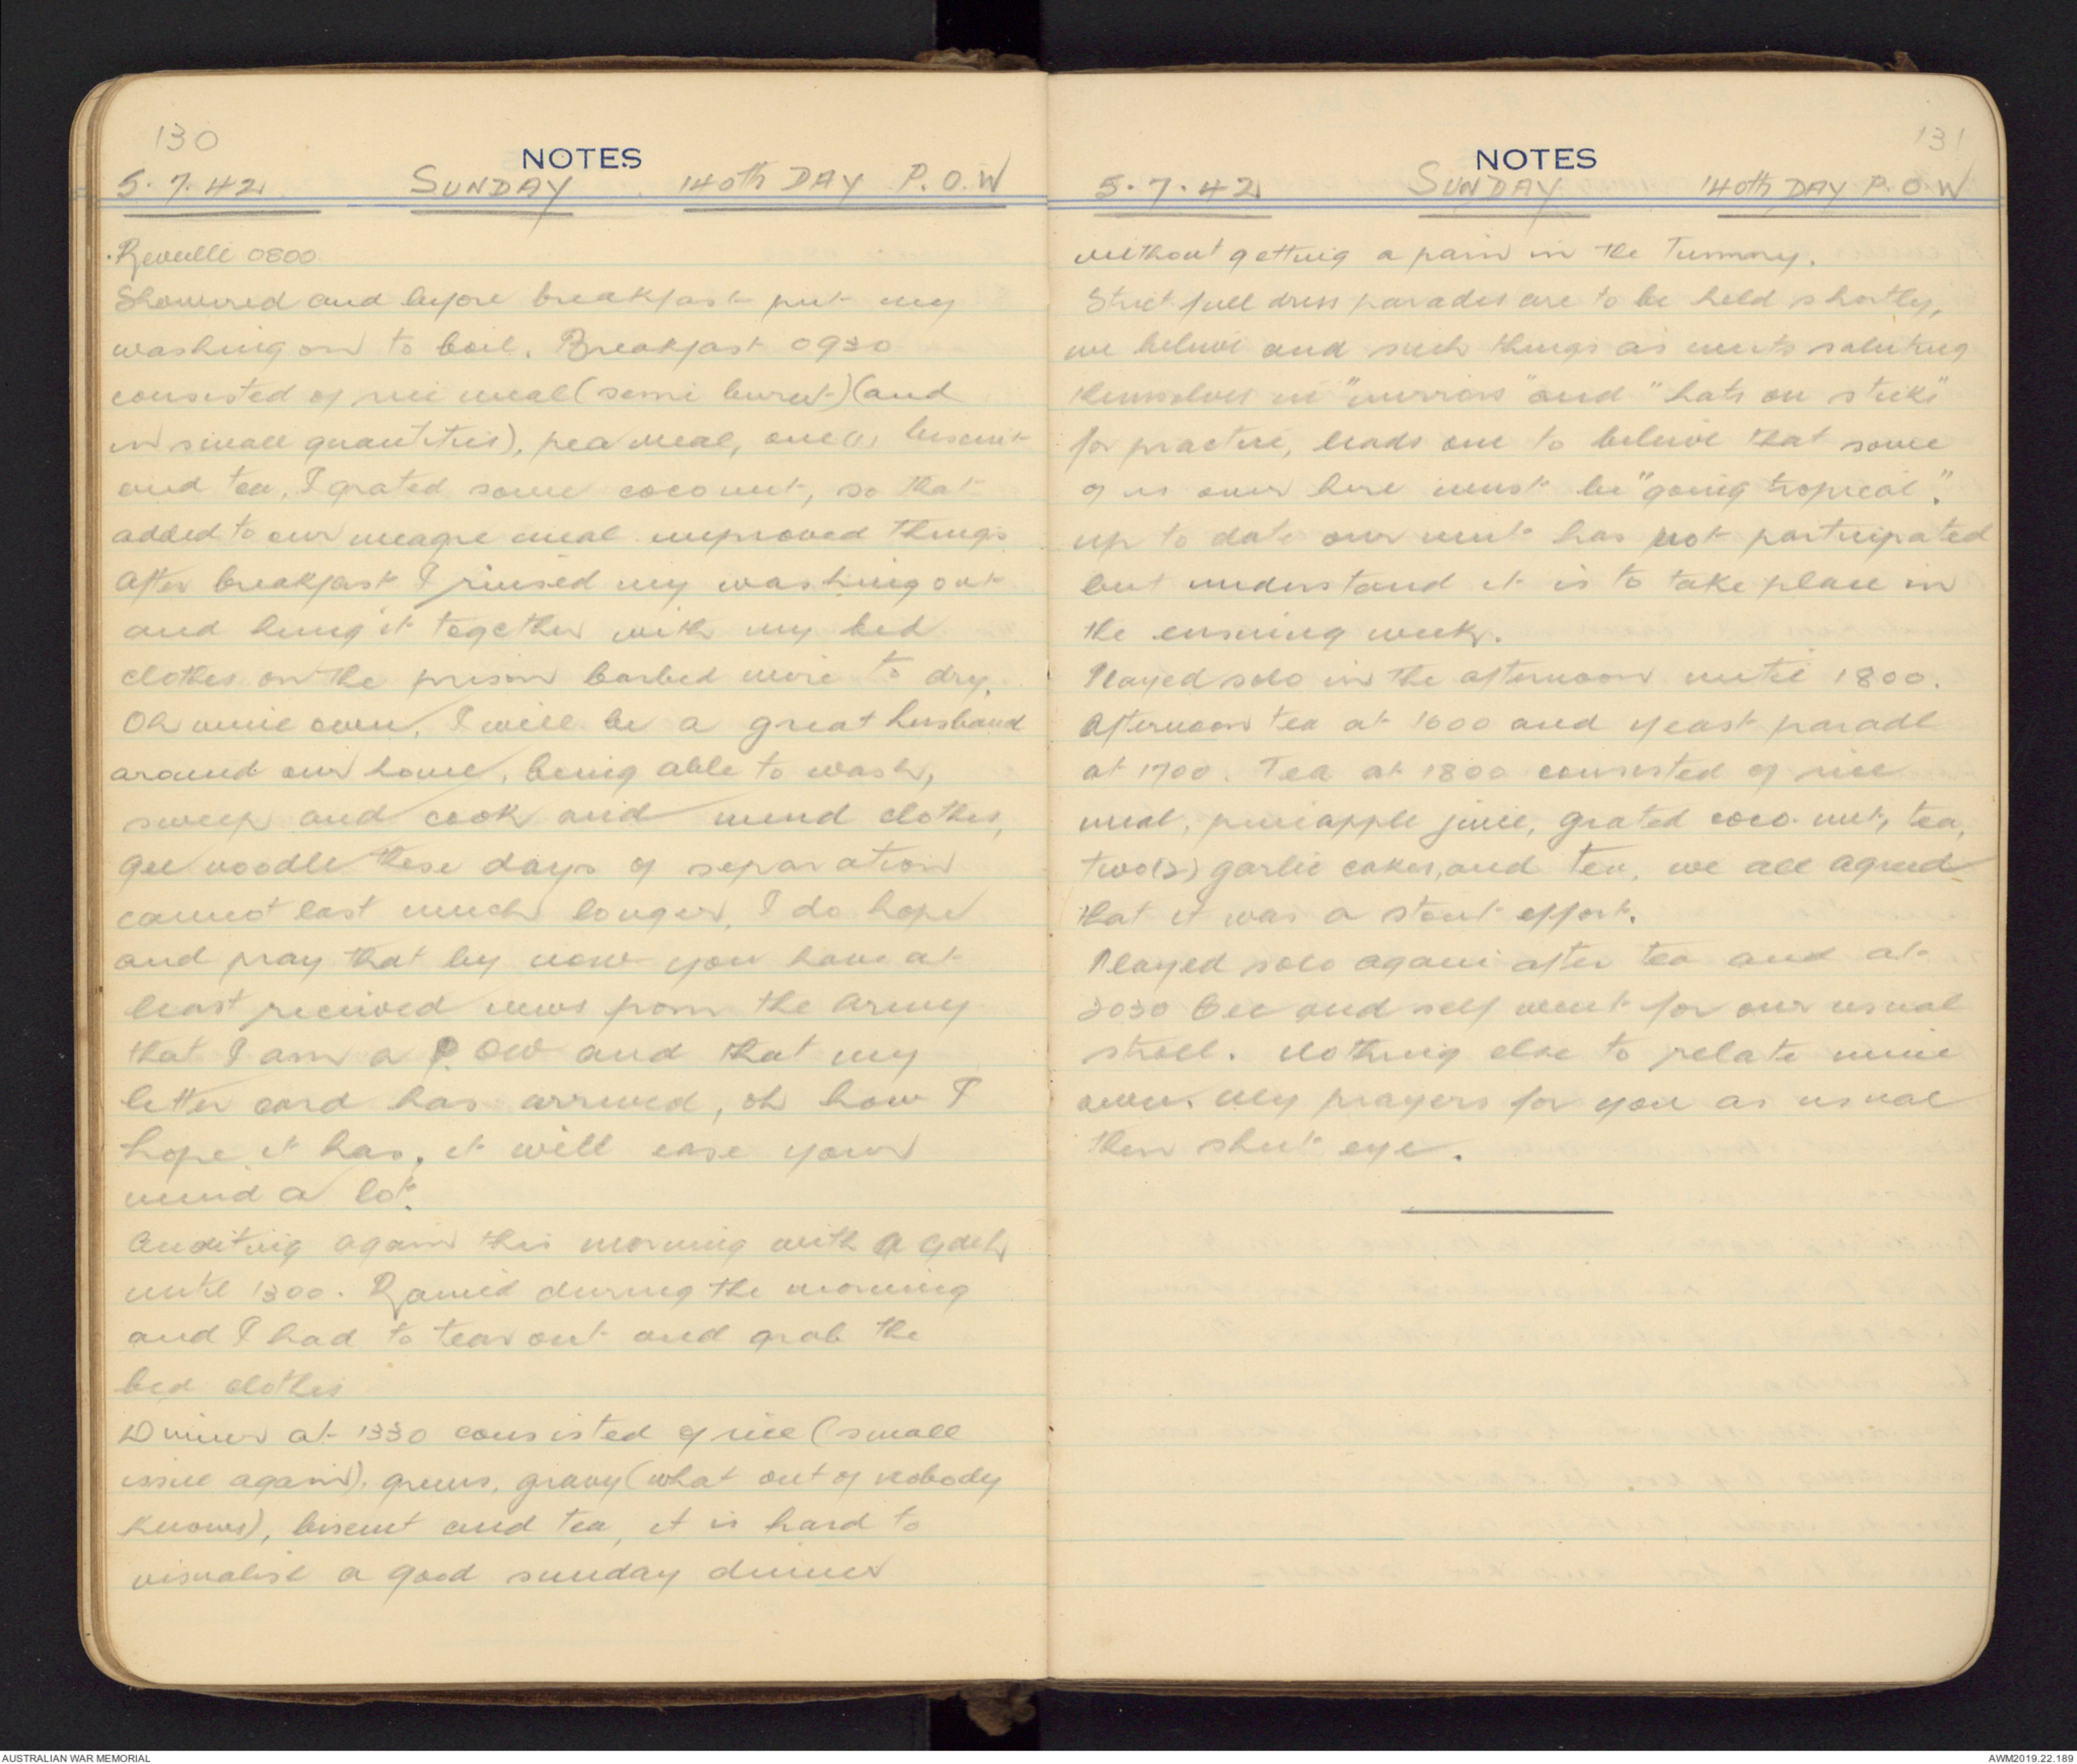 130
NOTES
5.7.42 SUNDAY 140th DAY P.O.W
Reveille 0800
Showered and before breakfast put my
washing on to boil. Breakfast 0930
consisted of rice meal (semi burnt) (and
in small quantities), pea meal, one (1) biscuit
and tea. I grated some coconut, so that
added to our meagre meal improved things
After breakfast I rinsed my washing out
and hung it together with my bed
clothes on the prison barbed wire to dry.
Oh mine own, I will be a great husband
around our home, being able to wash,
sweep and cook and mend clothes,
gee noodle these days of separation
cannot last much longer, I do hope
and pray that by now you have at
least received news from the Army
that I am a P.OW and that my
letter card has arrived, oh how I
hope it has, it will ease your
mind a lot.
Auditing again this morning with
until 1300. Rained during the morning
and I had to tear out and grab the
bed clothes
Dinner at 1330 consisted of rice (small
issue again), greens, gravy (what out of nobody
knows), biscuit and tea, it is hard to
visualise a good sunday dinner
131
NOTES
5.7.42 SUNDAY 140th DAY P.O.W
without getting a pain in the Tummy.
Strict full dress parades are to be held shortly,
we believe and such things as units saluting
themselves in "mirrors" and "hats on sticks"
for practice, leads one to believe that some
of us over here must be "going tropical".
up to date our unit has not participated
but understand it is to take place in
the ensuing week.
Played solo in the afternoon until 1800.
Afternoon tea at 1600 and yeast parade
at 1700. Tea at 1800 consisted of rice
meal, pineapple juice, grated coco-nut, tea,
two (2) garlic cakes, and tea, we all agreed
that it was a stout effort.
Played solo again after tea and at
2030 Bee and self went for our usual
stroll. Nothing else to relate mine
own. My prayers for you as usual
then shut eye.
AUSTRALIAN WAR MEMORIAL
AWM2019.22.189